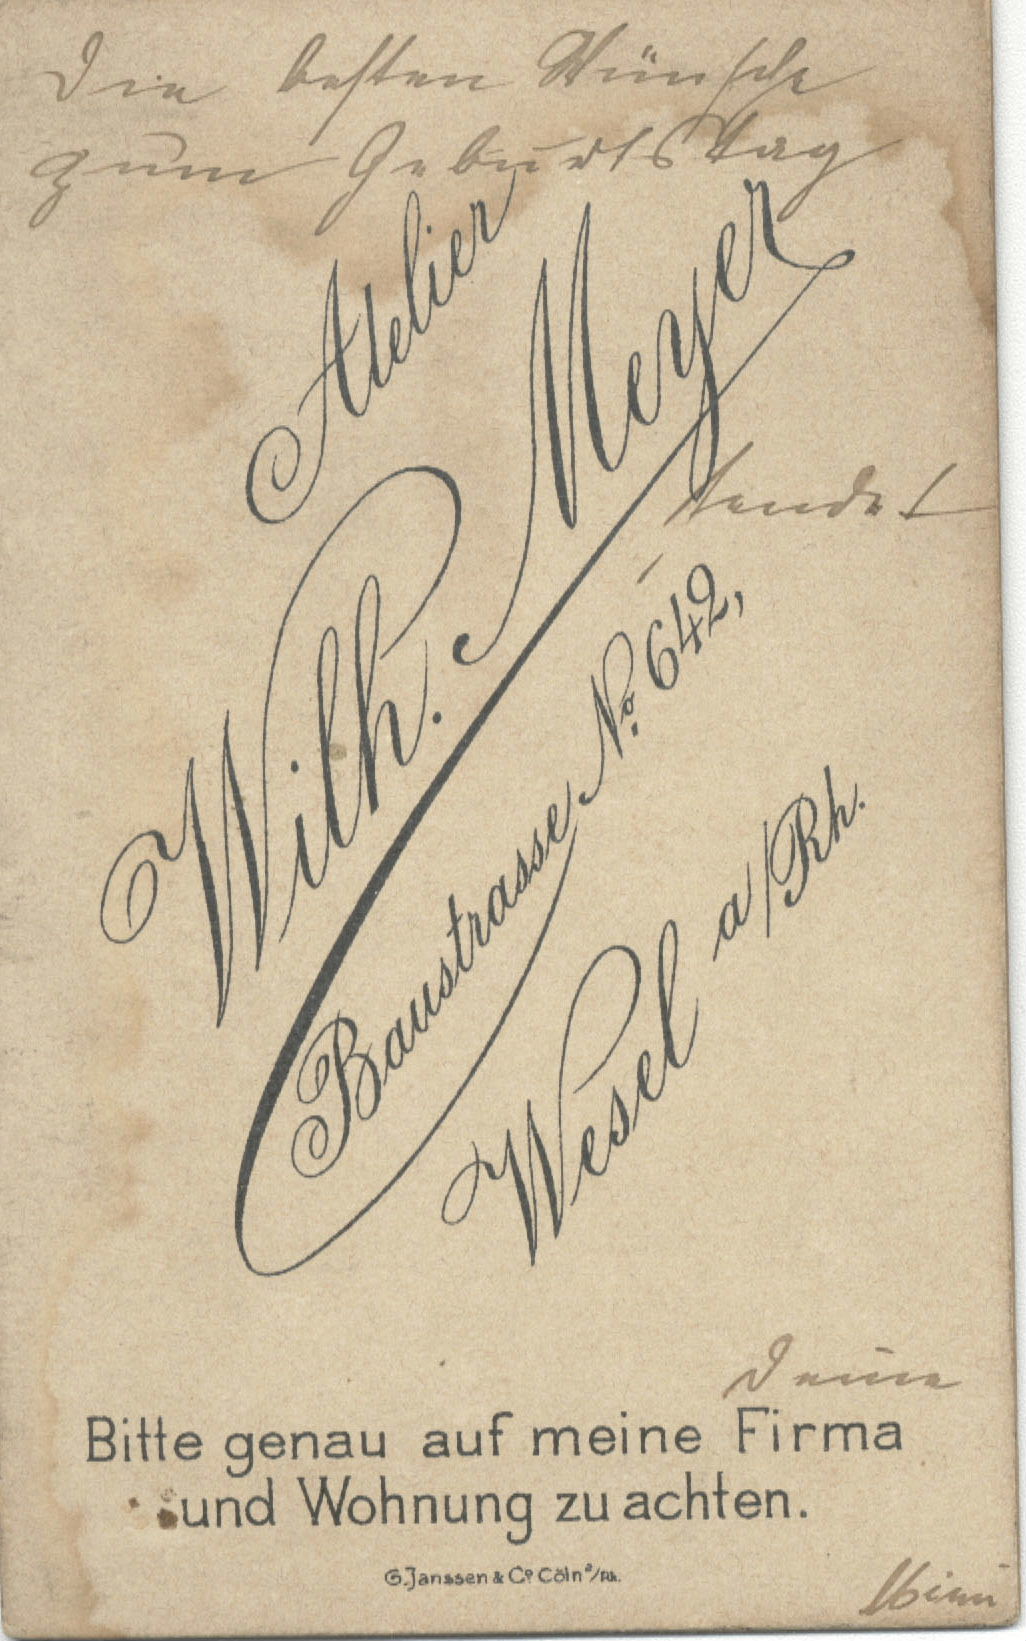 Die besten Wünsche
zum Geburtstag
Atelier
Wilh. Meyer
sendet
Baustrasse No. 642,
Wesel a/Rh.
Deine
Bitte genau auf meine Firma
und Wohnung zu achten.
G. Janssen & Co Cöln a/Rh.